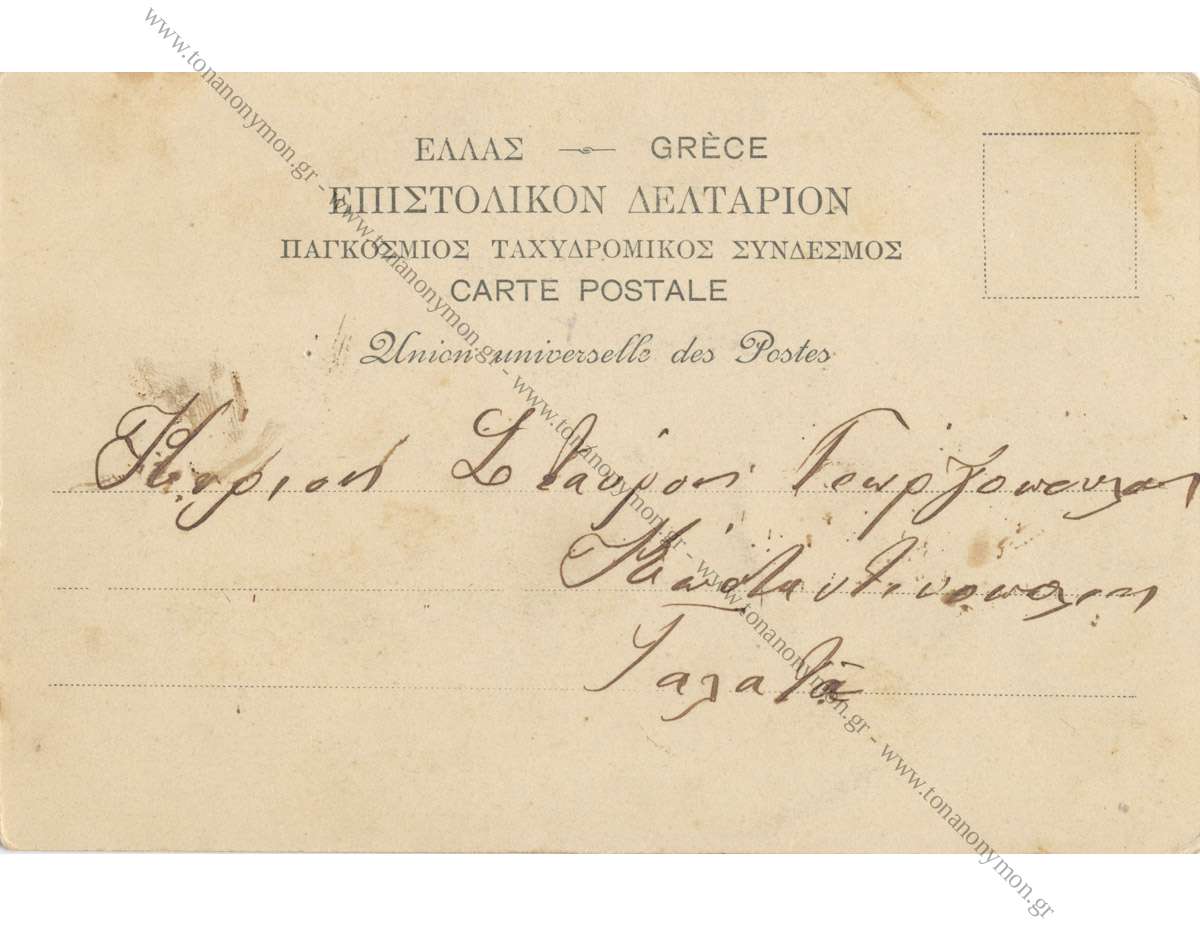 ΕΛΛΑΣ — GRÈCE
ΕΠΙΣΤΟΛΙΚΟΝ ΔΕΛΤΑΡΙΟΝ
ΠΑΓΚΟΣΜΙΟΣ ΤΑΧΥΔΡΟΜΙΚΟΣ ΣΥΝΔΕΣΜΟΣ
CARTE POSTALE
Union universelle des Postes
Κύριον Σταύρον Γεωργόπουλον
Κωσταντινοπολιν
Γαλατᾶ
www.tonanonymon.gr - www.tonanonymon.gr - www.tonanonymon.gr - www.tonanonymon.gr - www.tonanonymon.gr